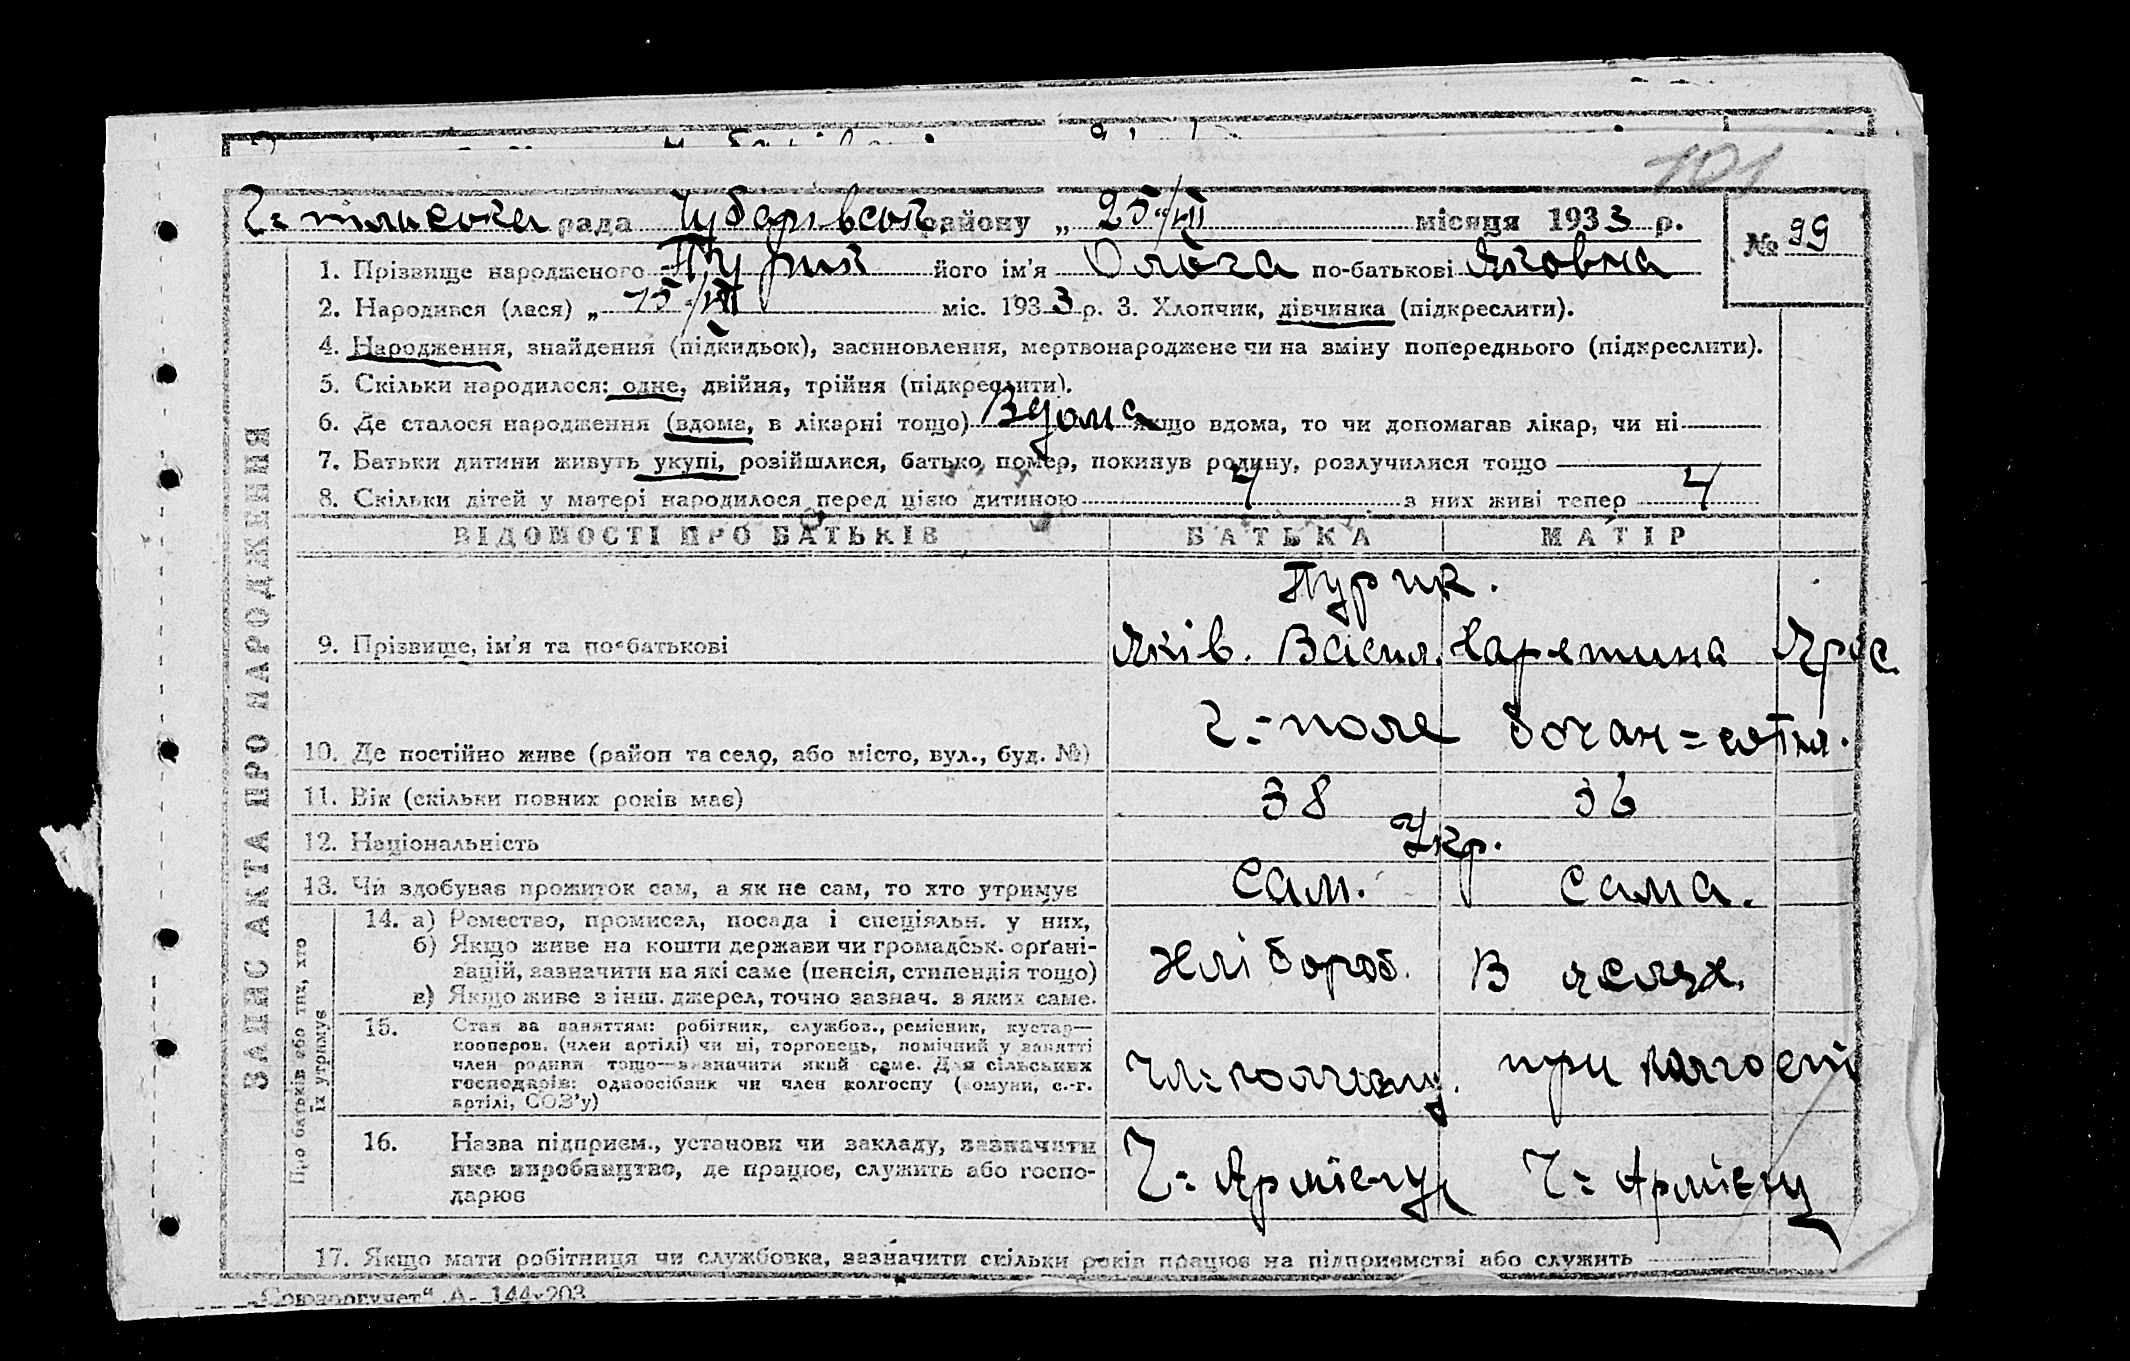 101
рада Чубарівськ. району „ 25/VII місяця 1933 р.
№ 99
1. Прізвище народженого Пурик його ім'я Ольга по-батькові Яковна
2. Народився (лася) „ 15/VII міс. 1933 р. 3. Хлопчик, дівчинка (підкреслити).
4. Народження, знайдення (підкидьок), засиновлення, мертвонароджене чи на зміну попереднього (підкреслити).
5. Скільки народилося: одне, двійня, трійня (підкреслити).
6. Де сталося народження (вдома, в лікарні тощо) Вдома якщо вдома, то чи допомагав лікар, чи ні
7. Батьки дитини живуть укупі, розійшлися, батько помер, покинув родину, розлучилися тощо
8. Скільки дітей у матері народилося перед цією дитиною 4 з них живі тепер 4
ЗАПИС АКТА ПРО НАРОДЖЕННЯ
ВІДОМОСТІ ПРО БАТЬКІВ БАТЬКА МАТІР
Пурик.
9. Прізвище, ім'я та по-батькові Яків. Васил. Харетина
10. Де постійно живе (район та село, або місто, вул., буд. №) Ч=поле
11. Вік (скільки повних років має) 38 36
12. Національність Укр.
13. Чи здобуває прожиток сам, а як не сам, то хто утримує Сам. Сама.
Про батьків або тих, хто їх утримує
14. а) Ремество, промисел, посада і спеціяльн. у них,
б) Якщо живе на кошти держави чи громадськ. орґані-
зацій, зазначити на які саме (пенсія, стипендія тощо)
в) Якщо живе з інш. джерел, точно зазнач. з яких саме.
Хлібороб. В яслях.
15. Стан за заняттям: робітник, службов., ремісник, кустар—
кооперов. (член артілі) чи ні, торговець, помічний у занятті
член родини тощо—зазначити який саме. Для сільських
господарів: одноосібник чи член колгоспу (комуни, с.-г.
артілі, СОЗ'у)
чл=колгоспу. при колгоспі
16. Назва підприєм., установи чи закладу, зазначити
яке виробництво, де працює, служить або госпо-
дарює
Ч= Армієць Ч= Армієць
17. Якщо мати робітниця чи службовка, зазначити скільки років працює на підприємстві або служить
„Союзоргучет“ А- 144×203